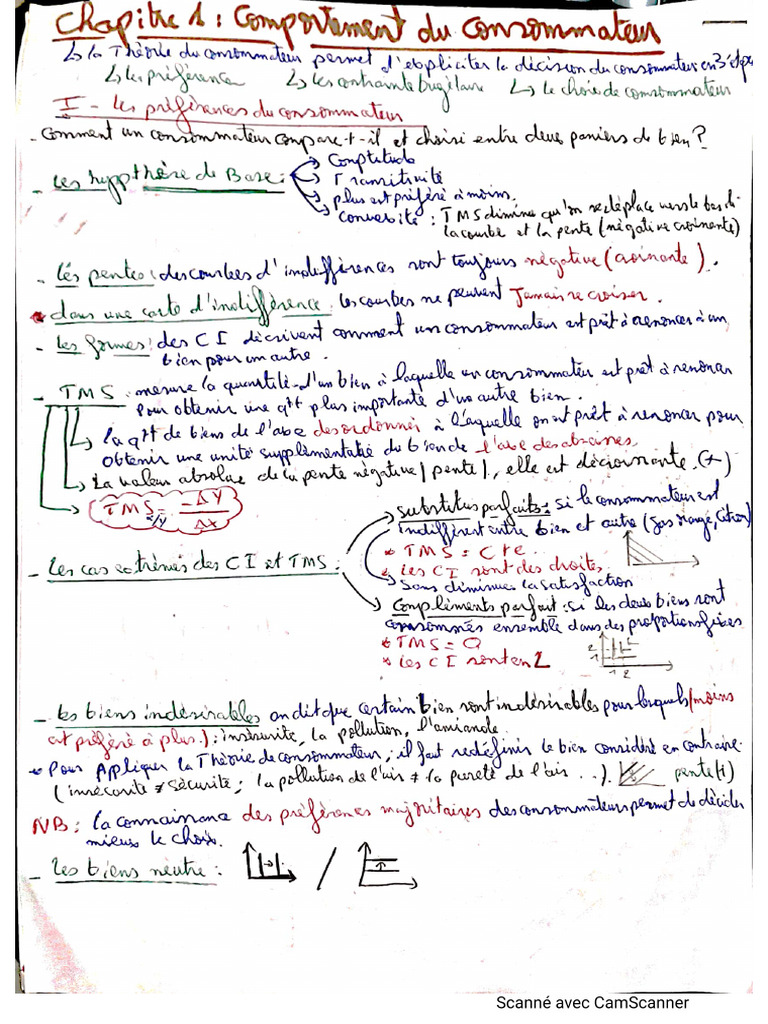 Chapitre 1 : Comportement du consommateur
↳ la Théorie du consommateur permet d'expliciter la décision du consommateur en 3 étape
↳ les préférence ↳ les contrainte bugétaire ↳ le choix de consommateur
I - les préférences du consommateur
- Comment un consommateur compare-t-il et choisi entre deux paniers de bien ?
- les hypothèse de Base : Complétude
Transitivité
plus est préféré à moins.
convexité : TMS diminue qu'on se déplace vers le bas de
la courbe et la pente (négative croissante)
- lés pentes : des courbes d'indifférences sont toujours négative (croissante).
* dans une carte d'indifférence : les courbes ne peuvent Jamais se croiser.
- les formes : des CI décrivent comment un consommateur est prêt à renoncer à un
bien pour un autre.
- TMS : mesure la quantité d'un bien à laquelle un consommateur est prêt à renoncer
pour obtenir une qtt plus importante d'un autre bien.
↳ la qtt de biens de l'axe des ordonner à laquelle on est prêt à renoncer pour
obtenir une unité supplémentaire du bien de l'axe des abscisses
↳ La valeur absolue de la pente négative |pente|, elle est décroissante. (-)
TMS x/y = -ΔY/ΔX
- les cas extrêmes des CI et TMS :
substituts parfaits : si le consommateur est
indifférent entre bien et autre
* TMS = Cte.
* les CI sont des droites.
↳ sans diminuer la satisfaction
Compléments parfait : si les deux biens sont
consommés ensemble dans des proportions fixes
* TMS = 0
* les CI sont en L
2
1
1 2
- les biens indésirables on dit que certain bien sont indésirables pour lesquels (moins
est préféré à plus.) : insécurité, la pollution, l'amiante
* Pour Appliquer la Théorie de consommateur, il faut redéfinir le bien considéré en contraire.
(insécurité ≠ sécurité ; la pollution de l'air ≠ la pureté de l'air ...). pente (+)
NB : la connaissance des préférences majoritaires des consommateurs permet de décider
mieux le choix.
- les biens neutre : /
Scanné avec CamScanner